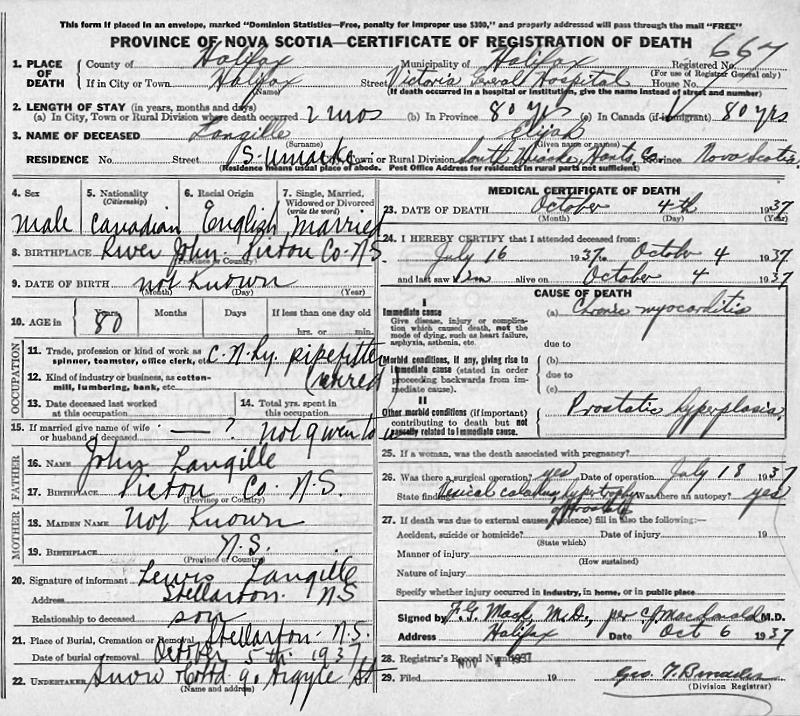 This form if placed in an envelope, marked "Dominion Statistics—Free, penalty for improper use $300," and properly addressed will pass through the mail "FREE"
PROVINCE OF NOVA SCOTIA—CERTIFICATE OF REGISTRATION OF DEATH
667
1. PLACE OF DEATH County of Halifax Municipality of Halifax Registered No.
(For use of Registrar General only)
If in City or Town Halifax Street Victoria General Hospital House No.
(Name) (If death occurred in a hospital or institution, give the name instead of street and number)
2. LENGTH OF STAY (in years, months and days)
(a) In City, Town or Rural Division where death occurred 2 mos (b) In Province 80 yrs (c) In Canada (if immigrant) 80 yrs
3. NAME OF DECEASED Langille Elijah
(Surname) (Given name or names)
RESIDENCE No. Street S. Uniacke Town or Rural Division South Uniacke, Hants Co. Province Nova Scotia
(Residence means usual place of abode. Post Office Address for residents in rural parts not sufficient)
4. Sex 5. Nationality (Citizenship) 6. Racial Origin 7. Single, Married, Widowed or Divorced (write the word)
male Canadian English married
8. BIRTHPLACE River John Pictou Co. N.S.
(Province or Country)
9. DATE OF BIRTH not Known
(Month) (Day) (Year)
10. AGE in Years Months Days If less than one day old
80 hrs. or min.
OCCUPATION
11. Trade, profession or kind of work as spinner, teamster, office clerk, etc. C.N.Ry. pipefitter
12. Kind of industry or business, as cotton-mill, lumbering, bank, etc. (retired)
13. Date deceased last worked at this occupation 14. Total yrs. spent in this occupation
15. If married give name of wife or husband of deceased — ? not given to us
FATHER
16. NAME John Langille
17. BIRTHPLACE Pictou Co. N.S.
(Province or Country)
MOTHER
18. MAIDEN NAME Not Known
19. BIRTHPLACE N.S.
(Province or Country)
20. Signature of informant Lewis Langille
Address Stellarton. N.S
Relationship to deceased son
21. Place of Burial, Cremation or Removal Stellarton. N.S.
Date of burial or removal October 5th 1937
22. UNDERTAKER Snow & Co Ltd 90 Argyle St
(Name and address)
MEDICAL CERTIFICATE OF DEATH
23. DATE OF DEATH October 4th 1937
(Month) (Day) (Year)
24. I HEREBY CERTIFY that I attended deceased from:
July 16 1937 to October 4 1937
and last saw him alive on October 4 1937
CAUSE OF DEATH
I
Immediate cause
Give disease, injury or complication which caused death, not the mode of dying, such as heart failure, asphyxia, asthenia, etc.
(a) Chronic myocarditis
due to
Morbid conditions, if any, giving rise to immediate cause (stated in order proceeding backwards from immediate cause).
(b)
due to
(c)
II
Other morbid conditions (if important) contributing to death but not causally related to immediate cause.
Prostatic hyperplasia
25. If a woman, was the death associated with pregnancy?
26. Was there a surgical operation? yes Date of operation July 18 1937
State findings Vesical calculus hypertrophy of Prostate Was there an autopsy? yes
27. If death was due to external causes (violence) fill in also the following:—
Accident, suicide or homicide? Date of injury 19
(State which)
Manner of injury
(How sustained)
Nature of injury
Specify whether injury occurred in industry, in home, or in public place
Signed by F.G. Mack, M.D., per C.J. Macdonald M.D.
Address Halifax Date Oct 6 1937
28. Registrar's Record Number
NOV 1 1937
29. Filed 19 Geo.
(Division Registrar)